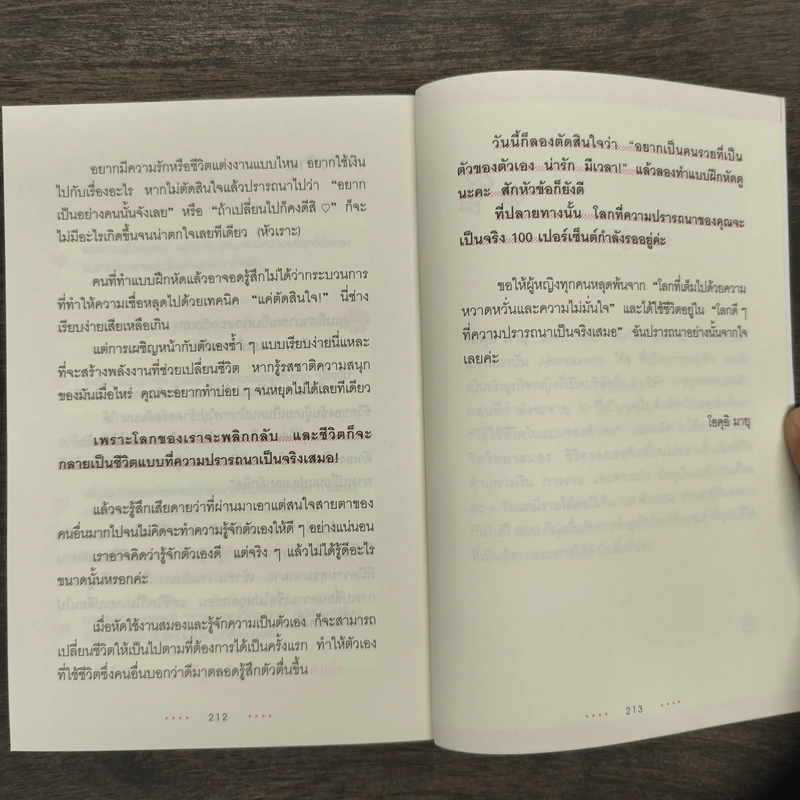 อยากมีความรักหรือชีวิตแต่งงานแบบไหน อยากใช้เงิน
ไปกับเรื่องอะไร หากไม่ตัดสินใจแล้วปรารถนาไปว่า “อยาก
เป็นอย่างคนนั้นจังเลย” หรือ “ถ้าเปลี่ยนไปก็คงดีสิ ♡” ก็จะ
ไม่มีอะไรเกิดขึ้นจนน่าตกใจเลยทีเดียว (หัวเราะ)
คนที่ทำแบบฝึกหัดแล้วอาจอดรู้สึกไม่ได้ว่ากระบวนการ
ที่ทำให้ความเชื่อหลุดไปด้วยเทคนิค “แค่ตัดสินใจ!” นี่ช่าง
เรียบง่ายเสียเหลือเกิน
แต่การเผชิญหน้ากับตัวเองซ้ำ ๆ แบบเรียบง่ายนี่แหละ
ที่จะสร้างพลังงานที่ช่วยเปลี่ยนชีวิต หากรู้รสชาติความสนุก
ของมันเมื่อไหร่ คุณจะอยากทำบ่อย ๆ จนหยุดไม่ได้เลยทีเดียว
เพราะโลกของเราจะพลิกกลับ และชีวิตก็จะ
กลายเป็นชีวิตแบบที่ความปรารถนาเป็นจริงเสมอ!
แล้วจะรู้สึกเสียดายว่าที่ผ่านมาเอาแต่สนใจสายตาของ
คนอื่นมากไปจนไม่คิดจะทำความรู้จักตัวเองให้ดี ๆ อย่างแน่นอน
เราอาจคิดว่ารู้จักตัวเองดี แต่จริง ๆ แล้วไม่ได้รู้ดีอะไร
ขนาดนั้นหรอกค่ะ
เมื่อหัดใช้งานสมองและรู้จักความเป็นตัวเอง ก็จะสามารถ
เปลี่ยนชีวิตให้เป็นไปตามที่ต้องการได้เป็นครั้งแรก ทำให้ตัวเอง
ที่ใช้ชีวิตซึ่งคนอื่นบอกว่าดีมาตลอดรู้สึกตัวตื่นขึ้น
212
วันนี้ก็ลองตัดสินใจว่า “อยากเป็นคนรวยที่เป็น
ตัวของตัวเอง น่ารัก มีเวลา!” แล้วลองทำแบบฝึกหัดดู
นะคะ สักหัวข้อก็ยังดี
ที่ปลายทางนั้น โลกที่ความปรารถนาของคุณจะ
เป็นจริง 100 เปอร์เซ็นต์กำลังรออยู่ค่ะ
ขอให้ผู้หญิงทุกคนหลุดพ้นจาก “โลกที่เต็มไปด้วยความ
หวาดหวั่นและความไม่มั่นใจ” และได้ใช้ชีวิตอยู่ใน “โลกดี ๆ
ที่ความปรารถนาเป็นจริงเสมอ” ฉันปรารถนาอย่างนั้นจากใจ
เลยค่ะ
โอคุฮิ มายุ
213